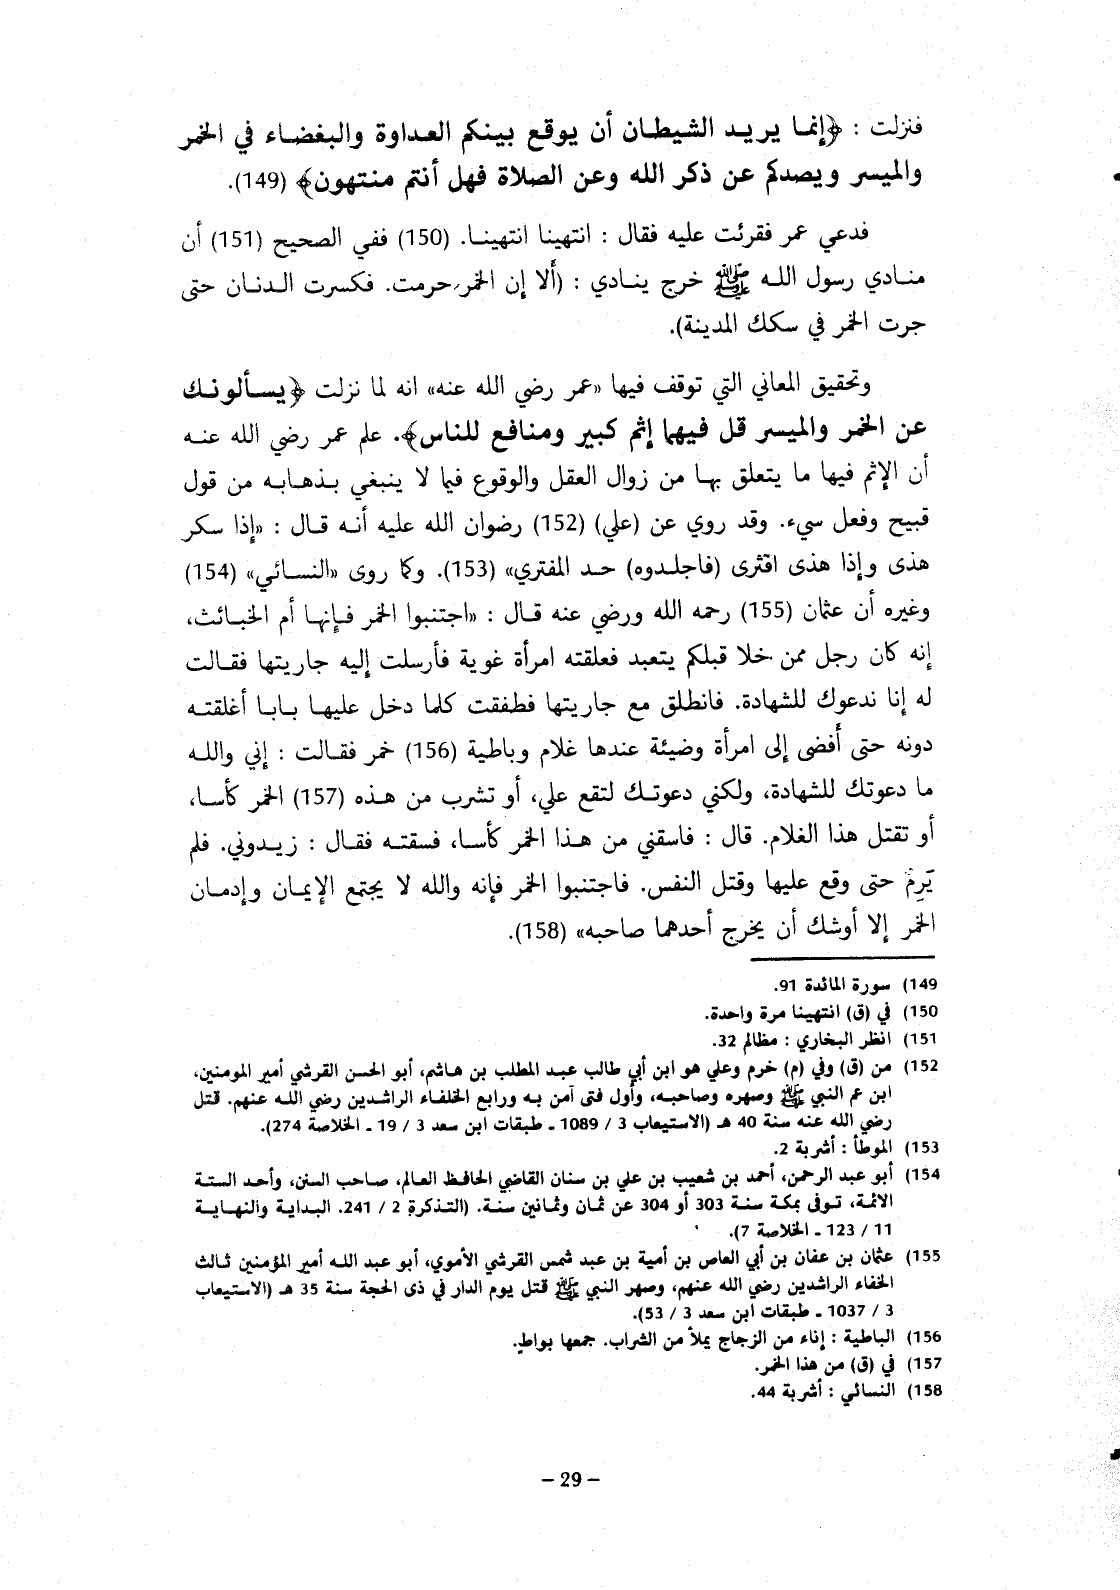 فنزلت : ﴿إنما يريد الشيطان أن يوقع بينكم العداوة والبغضاء في الخمر
والميسر ويصدكم عن ذكر الله وعن الصلاة فهل أنتم منتهون﴾ (149).
فدعي عمر فقرئت عليه فقال : انتهينا انتهينا. (150) ففي الصحيح (151) أن
منادي رسول الله ﷺ خرج ينادي : (ألا إن الخمر حرمت. فكسرت الدنان حتى
جرت الخمر في سكك المدينة).
وتحقيق المعاني التي توقف فيها «عمر رضي الله عنه» انه لما نزلت ﴿يسألونك
عن الخمر والميسر قل فيهما إثم كبير ومنافع للناس﴾. علم عمر رضي الله عنه
أن الإثم فيها ما يتعلق بها من زوال العقل والوقوع فيما لا ينبغي بذهابه من قول
قبيح وفعل سيء. وقد روي عن (علي) (152) رضوان الله عليه أنه قال : «إذا سكر
هذى وإذا هذى افترى (فاجلدوه) حد المفتري» (153). وكما روى «النسائي» (154)
وغيره أن عثمان (155) رحمه الله ورضي عنه قال : «اجتنبوا الخمر فإنها أم الخبائث،
إنه كان رجل ممن خلا قبلكم يتعبد فعلقته امرأة غوية فأرسلت إليه جاريتها فقالت
له إنا ندعوك للشهادة. فانطلق مع جاريتها فطفقت كلما دخل عليها بابا أغلقته
دونه حتى أفضى إلى امرأة وضيئة عندها غلام وباطية (156) خمر فقالت : إني والله
ما دعوتك للشهادة، ولكني دعوتك لتقع علي، أو تشرب من هذه (157) الخمر كأسا،
أو تقتل هذا الغلام. قال : فاسقني من هذا الخمر كأسا، فسقته فقال : زيدوني. فلم
يَرِمْ حتى وقع عليها وقتل النفس. فاجتنبوا الخمر فإنه والله لا يجتمع الإيمان وإدمان
الخمر إلا أوشك أن يخرج أحدهما صاحبه» (158).
149) سورة المائدة 91.
150) في (ق) انتهينا مرة واحدة.
151) انظر البخاري : مظالم 32.
152) من (ق) وفي (م) خرم وعلي هو ابن أبي طالب عبد المطلب بن هاشم، أبو الحسن القرشي أمير المومنين،
ابن عم النبي ﷺ وصهره وصاحبه، وأول فتى آمن به ورابع الخلفاء الراشدين رضي الله عنهم. قتل
رضي الله عنه سنة 40 هـ (الاستيعاب 3 / 1089 ـ طبقات ابن سعد 3 / 19 ـ الخلاصة 274).
153) الموطأ : أشربة 2.
154) أبو عبد الرحمن، أحمد بن شعيب بن علي بن سنان القاضي الحافظ العالم، صاحب السنن، وأحد الستة
الائمة، توفى بمكة سنة 303 أو 304 عن ثمان وثمانين سنة. (التذكرة 2 / 241. البداية والنهاية
11 / 123 ـ الخلاصة 7).
155) عثمان بن عفان بن أبي العاص بن أمية بن عبد شمس القرشي الأموي، أبو عبد الله أمير المؤمنين ثالث
الخفاء الراشدين رضي الله عنهم، وصهر النبي ﷺ قتل يوم الدار في ذى الحجة سنة 35 هـ (الاستيعاب
3 / 1037 ـ طبقات ابن سعد 3 / 53).
156) الباطية : إناء من الزجاج يملأ من الشراب. جمعها بواط.
157) في (ق) من هذا الخمر.
158) النسائي : أشربة 44.
– 29 –